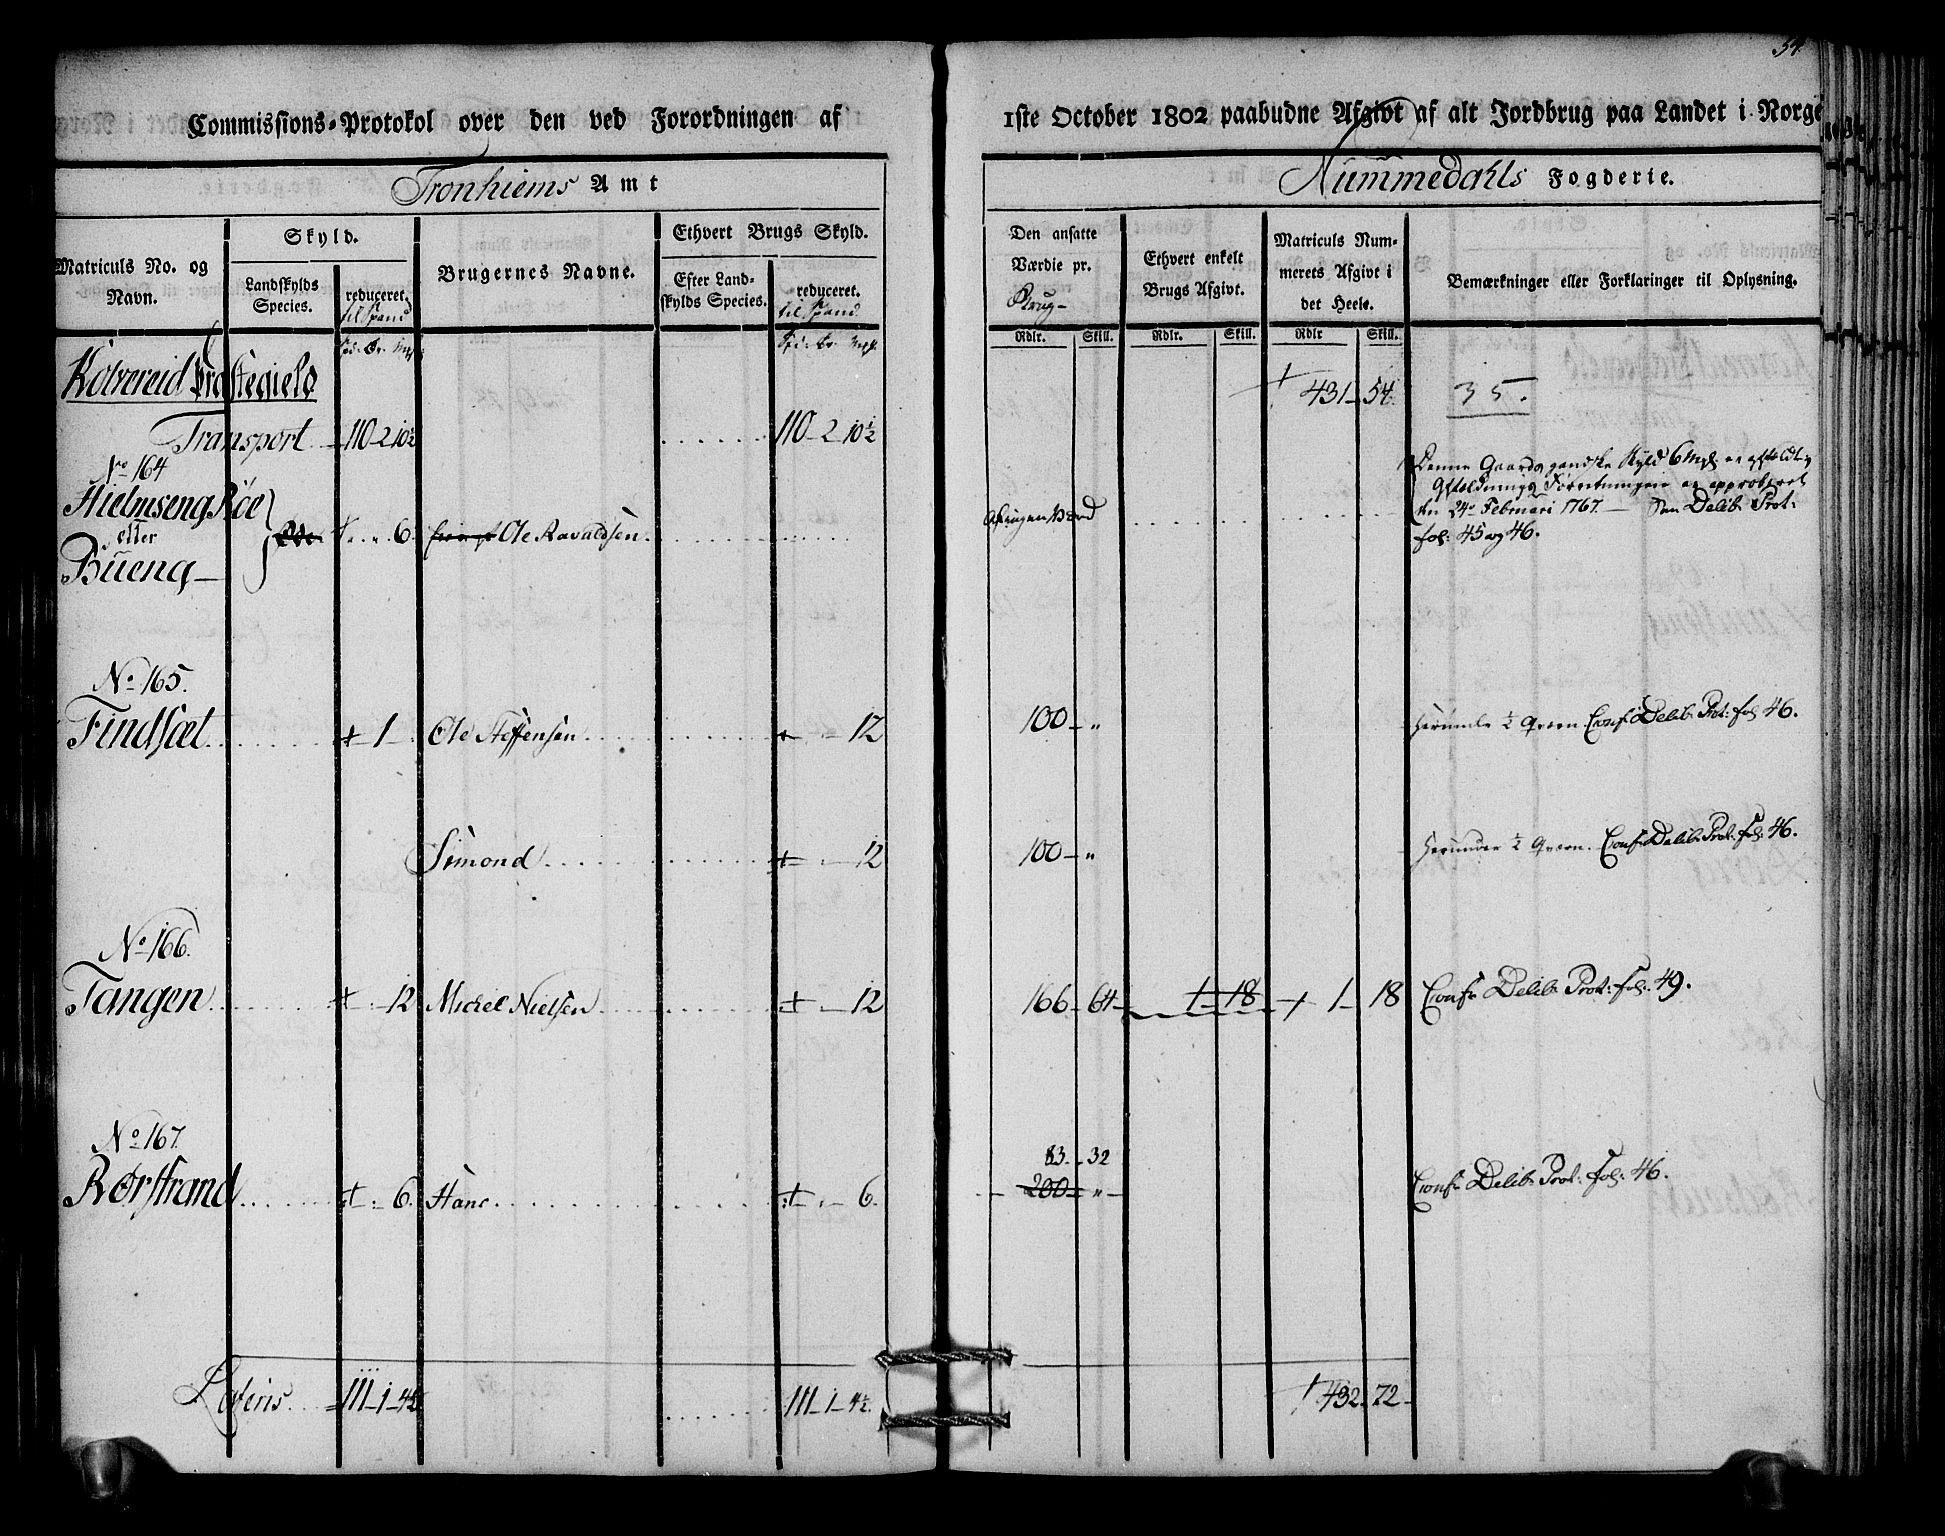 54.
Commissions-Protokol over den ved Forordningen af 1ste October 1802 paabudne Afgivt af alt Jordbrug paa Landet i Norge
Tronhiems Amt
Nummedahls Fogderie.
Matriculs No. og Navn.
Skyld.
Landskylds Species.
reduceret.
til Spand
Brugernes Navne.
Ethvert Brugs Skyld.
Efter Landskylds Species.
reduceret.
til Spand
Den ansatte Værdie pr.
Brug
Ethvert enkelt Brugs Afgivt.
Matriculs Nummerets Afgivt i det Heele.
Bemærkninger eller Forklaringer til Oplysning.
Rdlr. Skill. Rdlr. Skill. Rdlr Skill.
Kolvereid Præstegield
431 54. 35.
Transport 110 2 10½ 110 2 10½
No 164
Hielmseng Røe
eller
Bueng
6. Ole Ravaldsen
Denne Gaards gandske Skyld 6 Mkl er affældig
Affældnings Forretningen er approberet
den 24de Februari 1767. Delib: Prot:
fol: 45 og 46.
No 165.
Findsæt 1 Ole Steffensen 12 100 " Herunder ½ Qværn. Conf: Delib: Prot: fol 46.
Simond 12 100 " Herunder ½ Qværn. Conf: Delib: Prot: fol: 46.
No 166.
Tangen 12 Michel Nielsen 12 166 64 1 18 1 18 Conf: Delib: Prot: fol: 49.
No 167.
83 32
Rørstrand 6. Hans 6. 200 " Conf: Delib: Prot: fol: 46.
Lateris 111 1 4½ 111 1 4½ 432 72